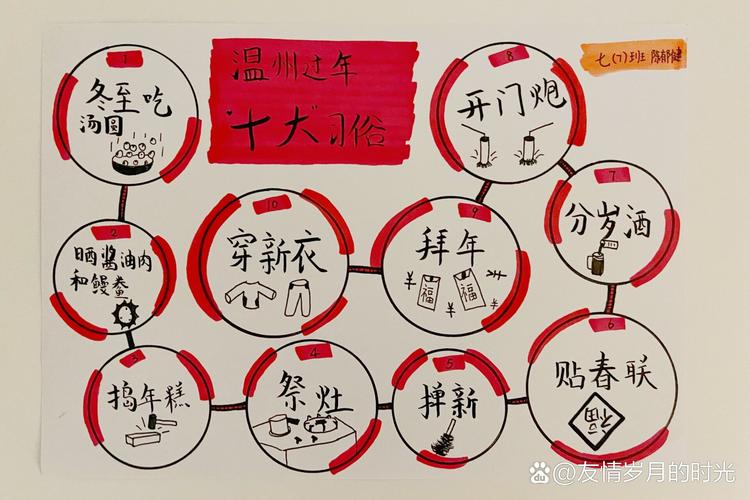 温州过年
"十大"习俗
七(7)班 陈郁健
1
冬至吃
汤圆
2
晒酱油肉
和鳗鲞
3
捣年糕
4
祭灶
5
掸新
6
贴春联
福
7
分岁酒
8
开门炮
9
拜年
¥ 福 ¥ 福 ¥
10
穿新衣
@友情岁月的时光